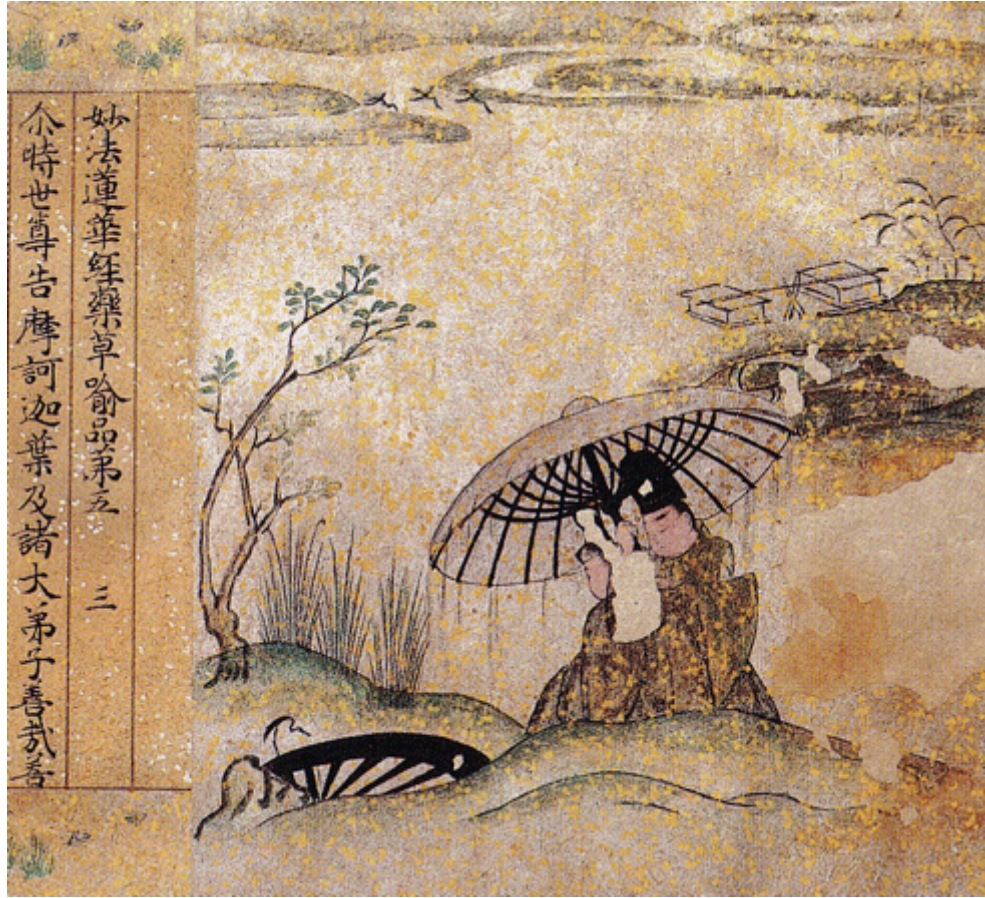 妙法蓮華経藥草喻品第五 三
尒時世尊告摩訶迦葉及諸大弟子善哉善